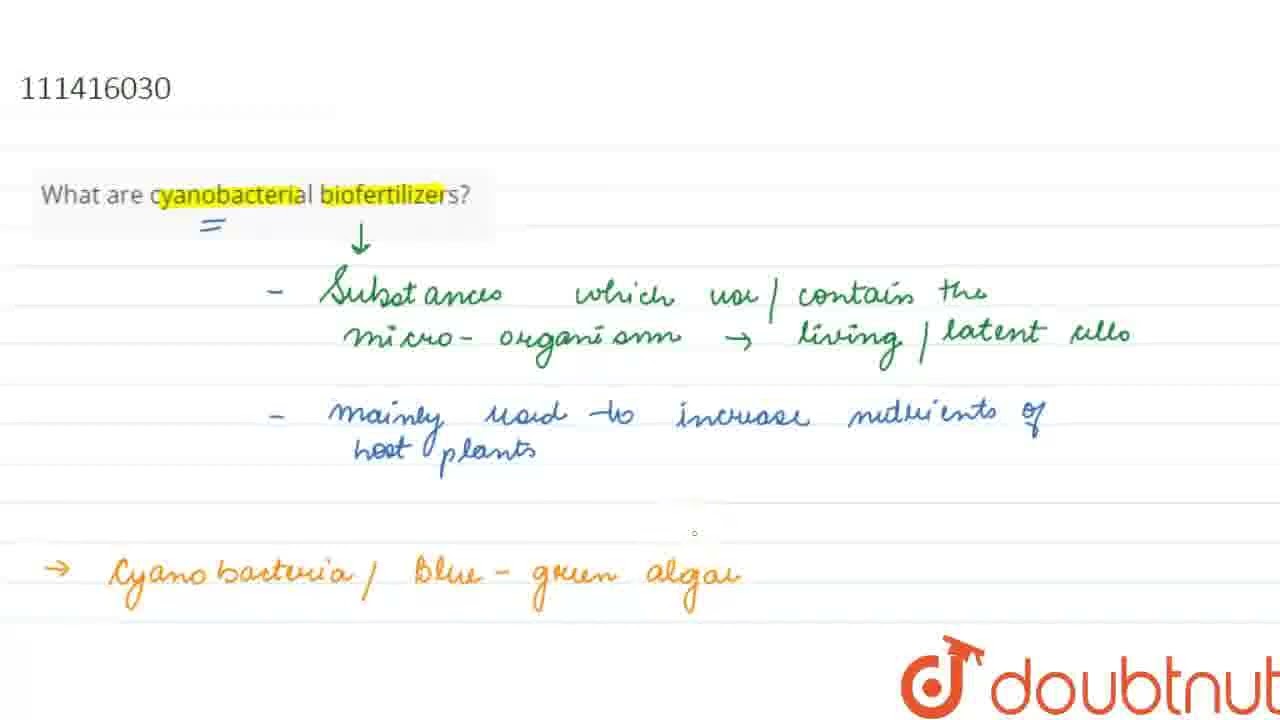 111416030
What are cyanobacterial biofertilizers?
- Substances which use / contain the
micro-organism → living / latent cells
- mainly used to increase nutrients of
host plants
→ Cyanobacteria / Blue-green algae
doubtnut